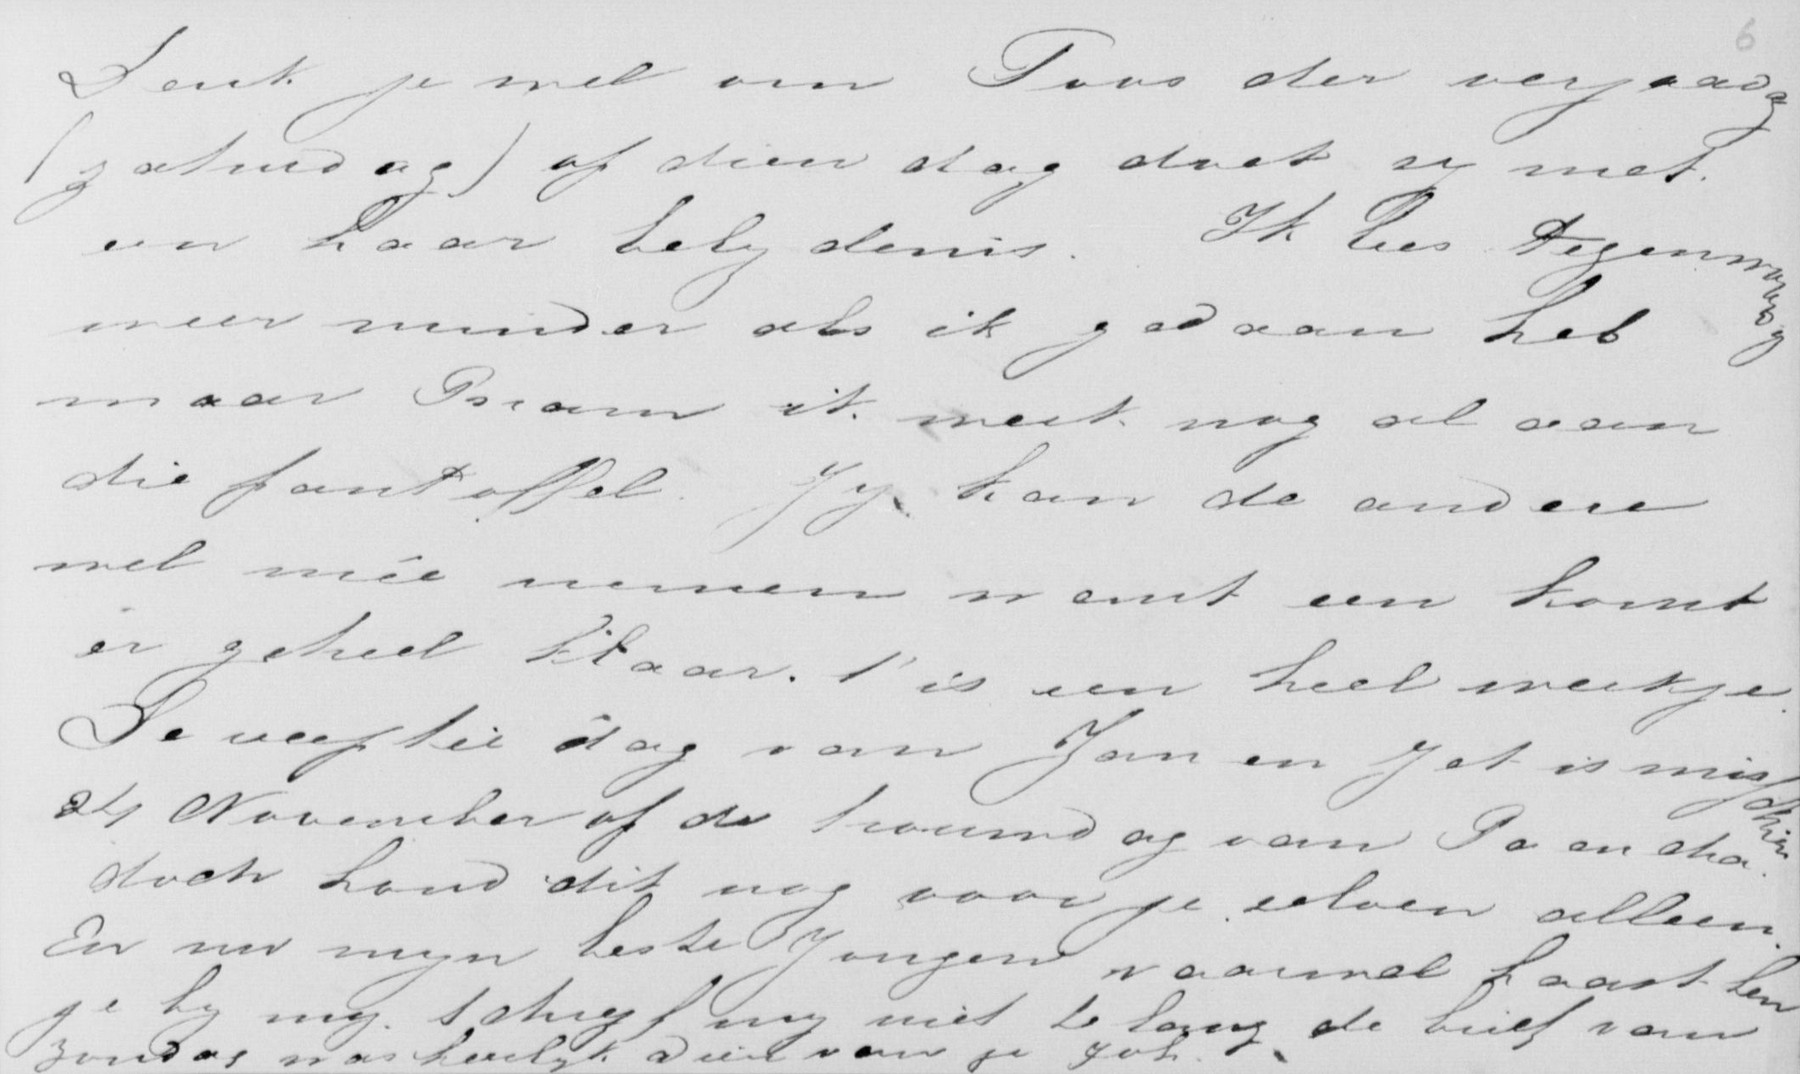 6
Denk je wel om Toos der verjaadag
(zaturdag) of dien dag doet zy met
een haar belydenis. Ik lees tegenwoordig
weer minder als ik gedaan heb
maar Bram ik werk nog al aan
die pantoffel. Jy kan de andere
wel mée nemen want een komt
er geheel klaar. t' is een heel werkje.
De dag van Jan en Jet is misschien
24 November of de trouwdag van Pa en Ma.
doch houd dit nog voor je selven alleen.
En nu myn beste Jongen vaarwel haast ben
je by my. schryf my niet te lang de brief van
zondag was heerlyk Dien van je Joh.